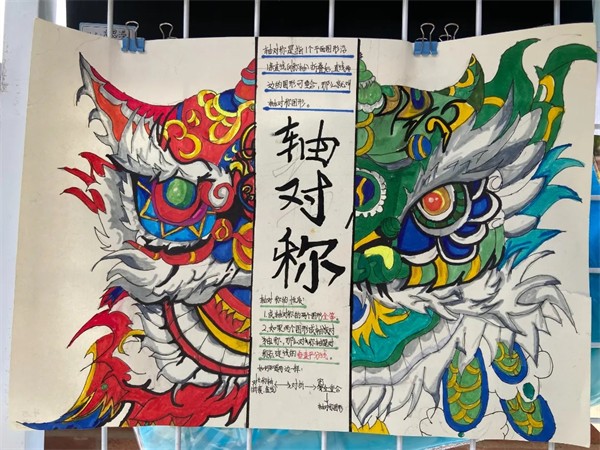 轴对称是指1个平面图形沿
1条直线(对称轴)折叠后,直线两
边的图形可重合,那么就叫
轴对称图形。
轴对称
轴对称的性质:
1.成轴对称的两个图形全等。
2.如果两个图形成轴对
称,那么对称轴是对
称点连线的垂直平分线。
对称轴 对折 完全重合
轴对称图形